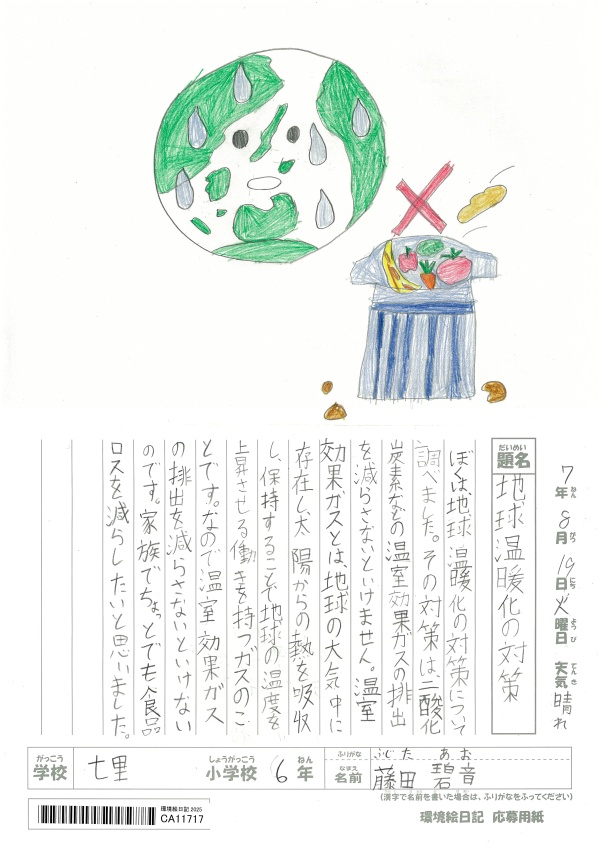 7年ねん8月がつ19日にち火曜日ようび 天気てんき晴れ
だいめい
題名 地球温暖化の対策
ぼくは、地球温暖化の対策について
調べました。その対策は、二酸化
炭素などの温室効果ガスの排出
を減らさないといけません。温室
効果ガスとは、地球の大気中に
存在し、太陽からの熱を吸収
し、保持することで地球の温度を
上昇させる働きを持つガスのこ
とです。なので温室効果ガス
の排出を減らさないといけない
のです。家族でちょっとでも食品
ロスを減らしたいと思いました。
がっこう しょうがっこう ねん ふりがな ふじた あお
学校 七里 小学校 6年 なまえ 名前 藤田 碧音
(漢字で名前を書いた場合は、ふりがなをふってください)
環境絵日記 2025
CA11717
環境絵日記 応募用紙